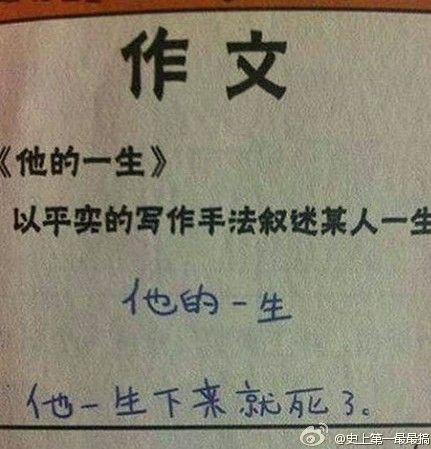 作文
《他的一生》
以平实的写作手法叙述某人一生
他的一生
他一生下来就死了。
@史上第一最最搞